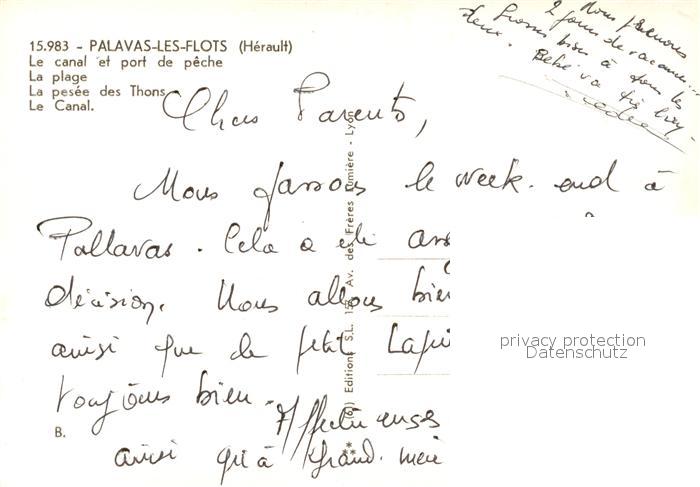 15.983 - PALAVAS-LES-FLOTS (Hérault)
Le canal et port de pêche
La plage
La pesée des Thons
Le Canal.
Nous prenons
2 jours de vacances...
bien à tous les
deux. Bébé va très bien.
Chers Parents,
Nous passons le week-end à
Pallavas. Cela a été
décision. Nous allons bien
ainsi que le petit Lapi
toujours bien.
Affectueuses
ainsi qu'à grand-mère
B.
(c) Editions S.L. Av. des Frères Lumière - Lyon
privacy protection
Datenschutz